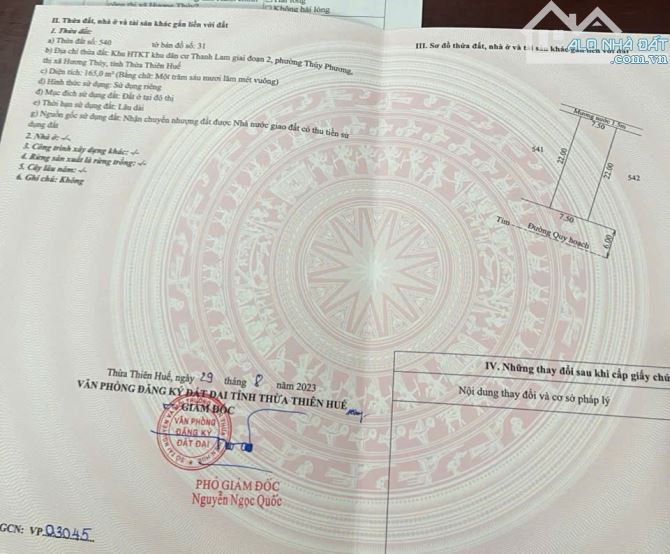 Không hài lòng
II. Thửa đất, nhà ở và tài sản khác gắn liền với đất
1. Thửa đất:
a) Thửa đất số: 540 tờ bản đồ số: 31
b) Địa chỉ thửa đất: Khu HTKT khu dân cư Thanh Lam giai đoạn 2, phường Thủy Phương,
thị xã Hương Thủy, tỉnh Thừa Thiên Huế
c) Diện tích: 165,0 m² (Bằng chữ: Một trăm sáu mươi lăm mét vuông)
d) Hình thức sử dụng: Sử dụng riêng
đ) Mục đích sử dụng đất: Đất ở tại đô thị
e) Thời hạn sử dụng đất: Lâu dài
g) Nguồn gốc sử dụng đất: Nhận chuyển nhượng đất được Nhà nước giao đất có thu tiền sử
dụng đất
2. Nhà ở: -/-
3. Công trình xây dựng khác: -/-
4. Rừng sản xuất là rừng trồng: -/-
5. Cây lâu năm: -/-
6. Ghi chú: Không
III. Sơ đồ thửa đất, nhà ở và tài sản khác gắn liền với đất
ALO NHÀ ĐẤT
Mương nước 1.5m
7.50
541
22.00
22.00
542
7.50
Tim
Đường Quy hoạch
6.00
Thừa Thiên Huế, ngày 29 tháng 8 năm 2023
VĂN PHÒNG ĐĂNG KÝ ĐẤT ĐAI TỈNH THỪA THIÊN HUẾ
GIÁM ĐỐC
VĂN PHÒNG
ĐĂNG KÝ
ĐẤT ĐAI
PHÓ GIÁM ĐỐC
Nguyễn Ngọc Quốc
IV. Những thay đổi sau khi cấp giấy chứ
Nội dung thay đổi và cơ sở pháp lý
GCN: VP.03045